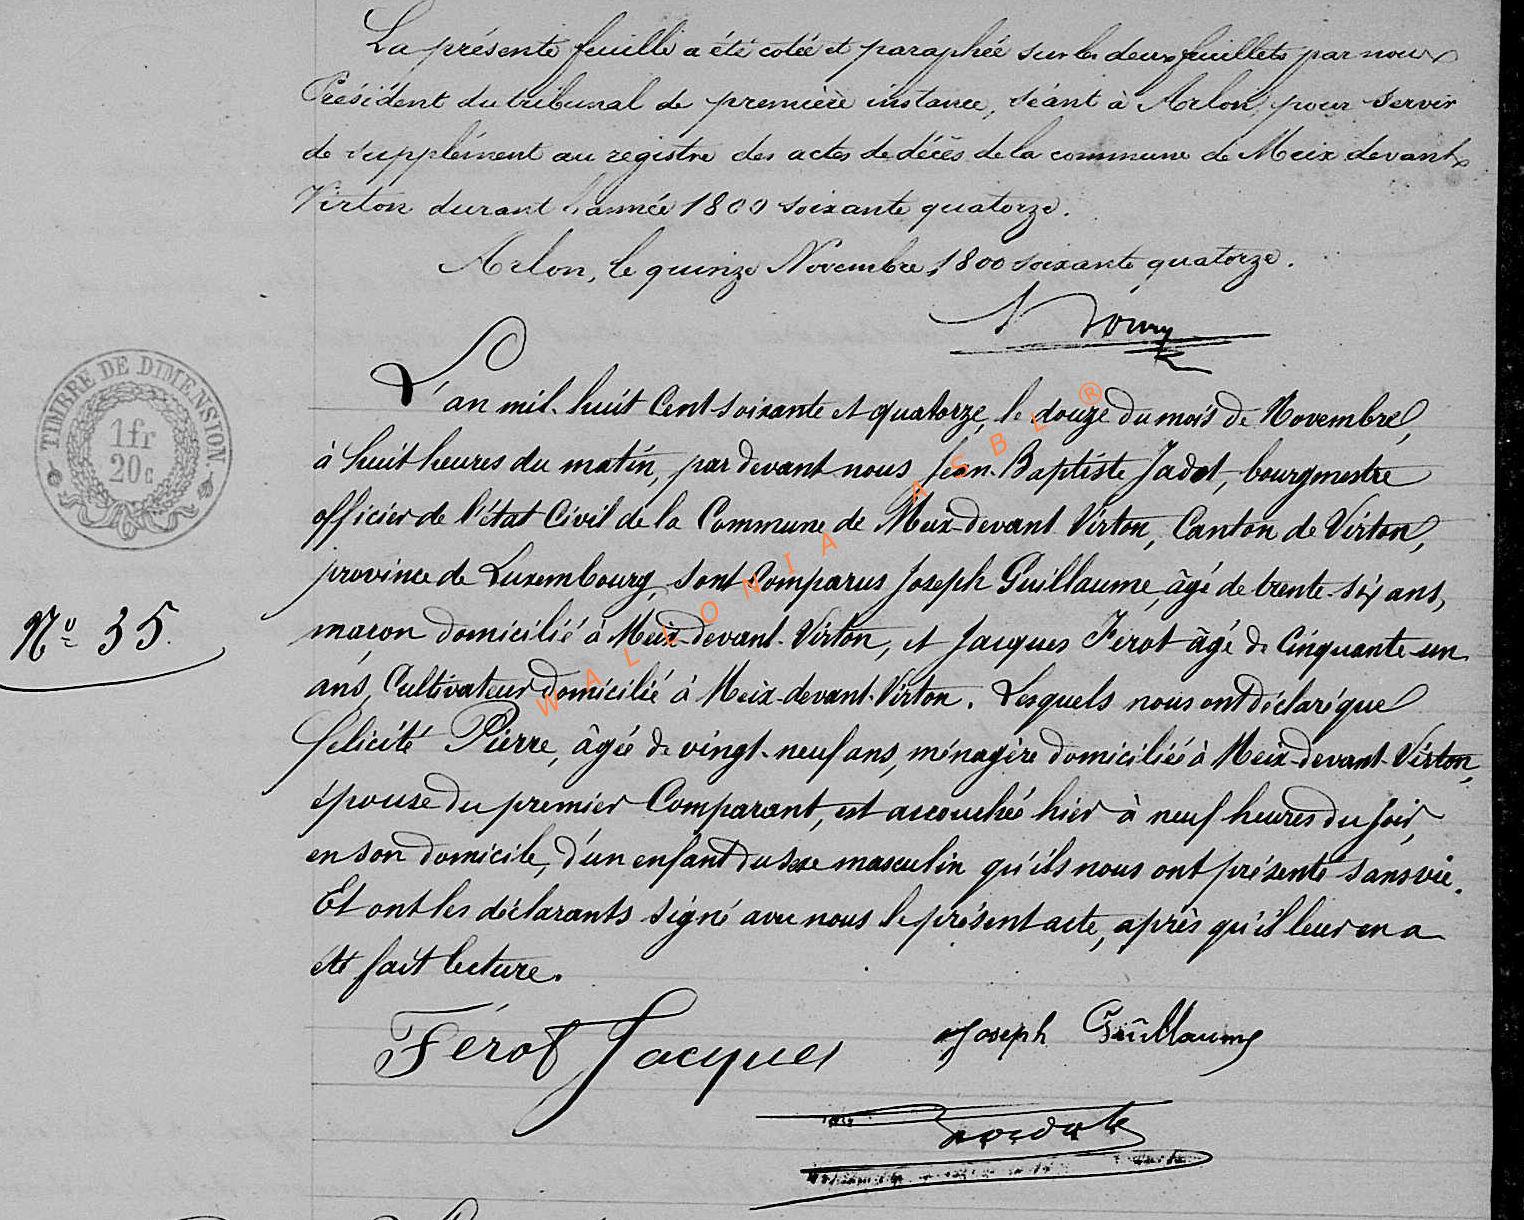 La présente feuille a été cotée et paraphée sur les deux feuillets par nous
Président du tribunal de première instance, séant à Arlon, pour servir
de supplément au registre des actes de décès de la commune de Meix devant
Virton durant l'année 1800 soixante quatorze.
Arlon, le quinze Novembre 1800 soixante quatorze.
TIMBRE DE DIMENSION.
1 fr
20 c
L'an mil huit Cent soixante et quatorze, le douze du mois de Novembre,
à huit heures du matin, par devant nous Jean-Baptiste Jadot, bourgmestre
officier de l'état Civil de la Commune de Meix-devant Virton, Canton de Virton,
province de Luxembourg, sont Comparus Joseph Guillaume, âgé de trente-six ans,
Nº 35.
maçon domicilié à Meix-devant-Virton, et Jacques Ferot âgé de Cinquante-un
ans, Cultivateur domicilié à Meix-devant-Virton. Lesquels nous ont déclaré que
Felicité Pierre, âgée de vingt-neuf ans, ménagère domiciliée à Meix-devant-Virton,
épouse du premier Comparant, est accouchée hier à neuf heures du soir,
en son domicile, d'un enfant du sexe masculin qu'ils nous ont présenté sans vie.
Et ont les déclarants signé avec nous le présent acte, après qu'il leur en a
été fait lecture.
Férot Jacques
Joseph Guillaume
WALLONIA ASBL ®